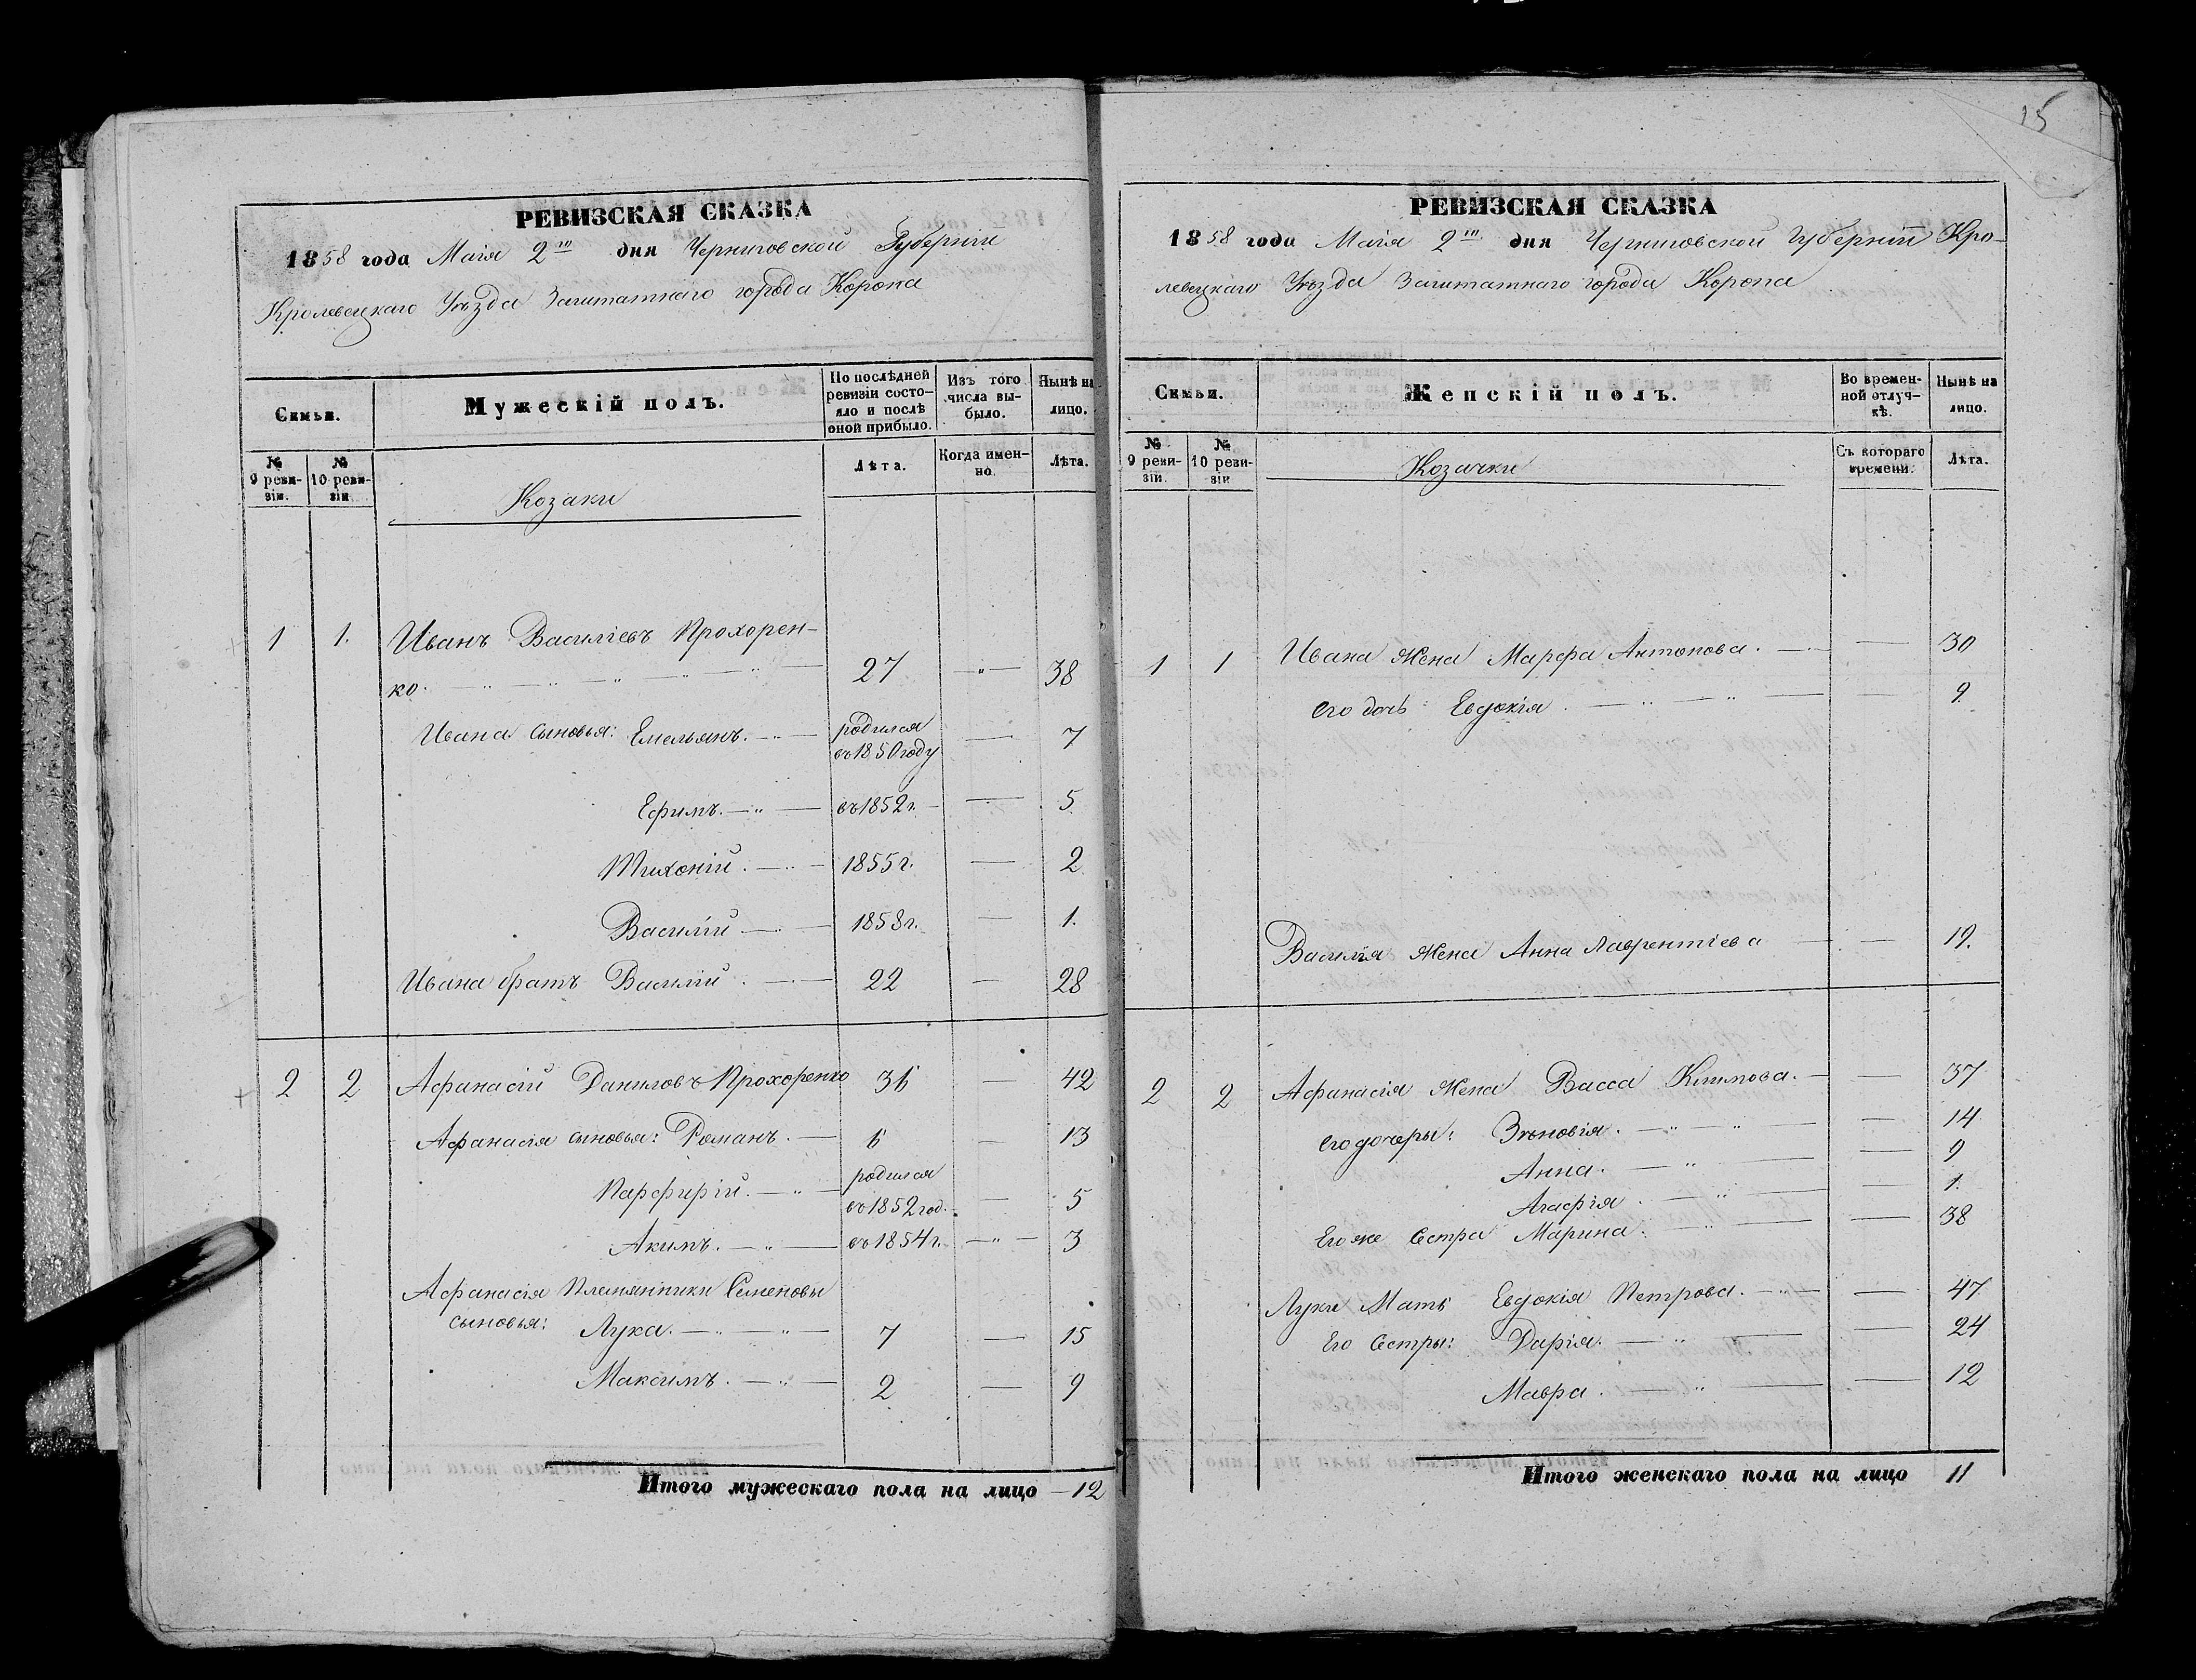 15
РЕВИЗСКАЯ СКАЗКА
1858 года Маія 2го дня Черниговской Губерніи
Кролевецкаго Уѣзда Заштатнаго города Коропа
Семьи.
Мужескій полъ.
По послѣдней ревизіи состояло и послѣ оной прибыло.
Изъ того числа выбыло.
Нынѣ на лицо.
№ 9 ревизіи.
№ 10 ревизіи
Козаки
Лѣта.
Когда именно.
Лѣта.
1 1. Иванъ Василіевъ Прохорен-
ко. 27 — 38
Ивана сыновья: Емельянъ. родился въ 1850 году — 7
Ефимъ. въ 1852 г. — 5
Тихоній. 1855 г. — 2
Василій 1858 г. — 1.
Ивана братъ Василій. 22 — 28
2 2 Афанасій Даниловъ Прохоренко 36 — 42
Афанасія сыновья: Романъ. 6 — 13
Парфирій. родился въ 1852 год. — 5
Акимъ. въ 1854 г. — 3
Афанасія Племянники Семеновы
сыновья: Лука. 7 — 15
Максимъ. 2 — 9
Итого мужескаго пола на лицо — 12
РЕВИЗСКАЯ СКАЗКА
1858 года Маія 2го дня Черниговской Губерніи Кро-
левецкаго Уѣзда Заштатнаго города Коропа
Семьи.
Женскій полъ.
Во временной отлучкѣ.
Нынѣ на лицо.
№ 9 ревизіи.
№ 10 ревизіи
Козачки
Съ котораго времени.
Лѣта.
1 1 Ивана жена Марфа Антонова. — 30
его дочь Евдокія. — 9.
Василія жена Анна Лаврентіева — 19.
2 2 Афанасія жена Васса Климова. — 37
его дочеры: Зѣновія. — 14
Анна. — 9
Агафія. — 1.
Его же Сестра Марина. — 38
Луки Мать Евдокія Петрова. — 47
Его Сестры: Дарія. — 24
Мавра. — 12
Итого женскаго пола на лицо 11